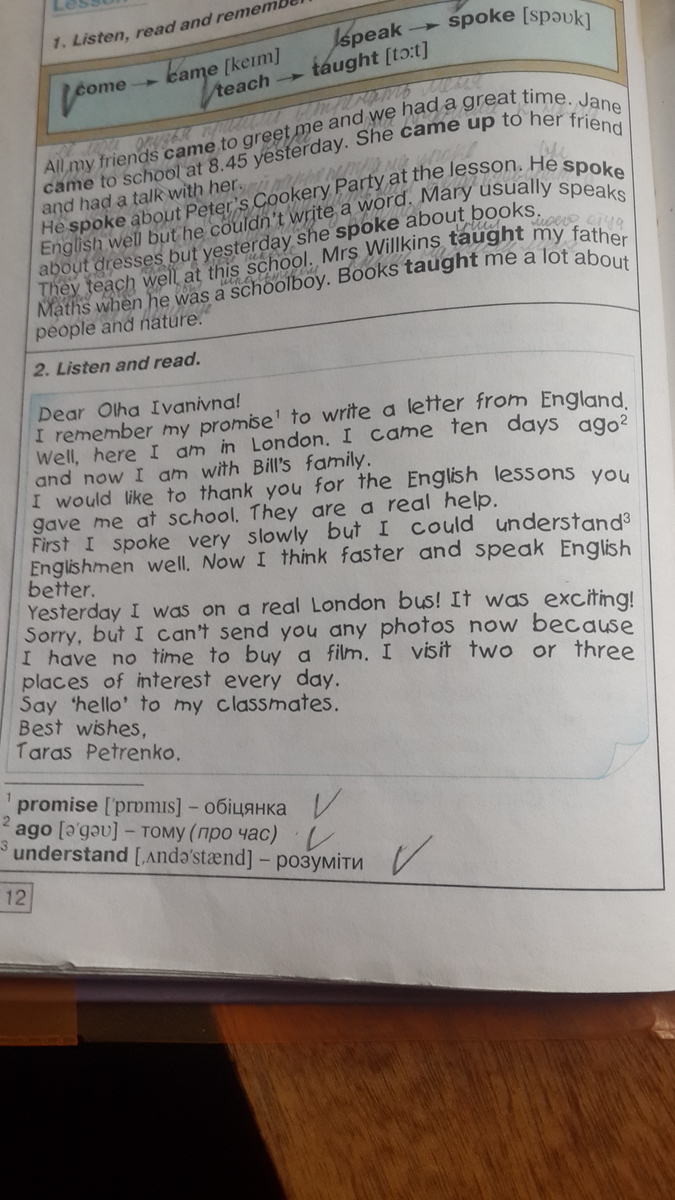 Lesson
1. Listen, read and remember
come → came [keɪm] speak → spoke [spəʊk]
teach → taught [tɔ:t]
All my friends came to greet me and we had a great time. Jane
came to school at 8.45 yesterday. She came up to her friend
and had a talk with her.
He spoke about Peter's Cookery Party at the lesson. He spoke
English well but he couldn't write a word. Mary usually speaks
about dresses but yesterday she spoke about books.
They teach well at this school. Mrs Willkins taught my father
Maths when he was a schoolboy. Books taught me a lot about
people and nature.
2. Listen and read.
Dear Olha Ivanivna!
I remember my promise¹ to write a letter from England.
Well, here I am in London. I came ten days ago²
and now I am with Bill's family.
I would like to thank you for the English lessons you
gave me at school. They are a real help.
First I spoke very slowly but I could understand³
Englishmen well. Now I think faster and speak English
better.
Yesterday I was on a real London bus! It was exciting!
Sorry, but I can't send you any photos now because
I have no time to buy a film. I visit two or three
places of interest every day.
Say 'hello' to my classmates.
Best wishes,
Taras Petrenko.
¹ promise [ˈprɒmɪs] – обіцянка
² ago [əˈgəʊ] – тому (про час)
³ understand [ˌʌndəˈstænd] – розуміти
12